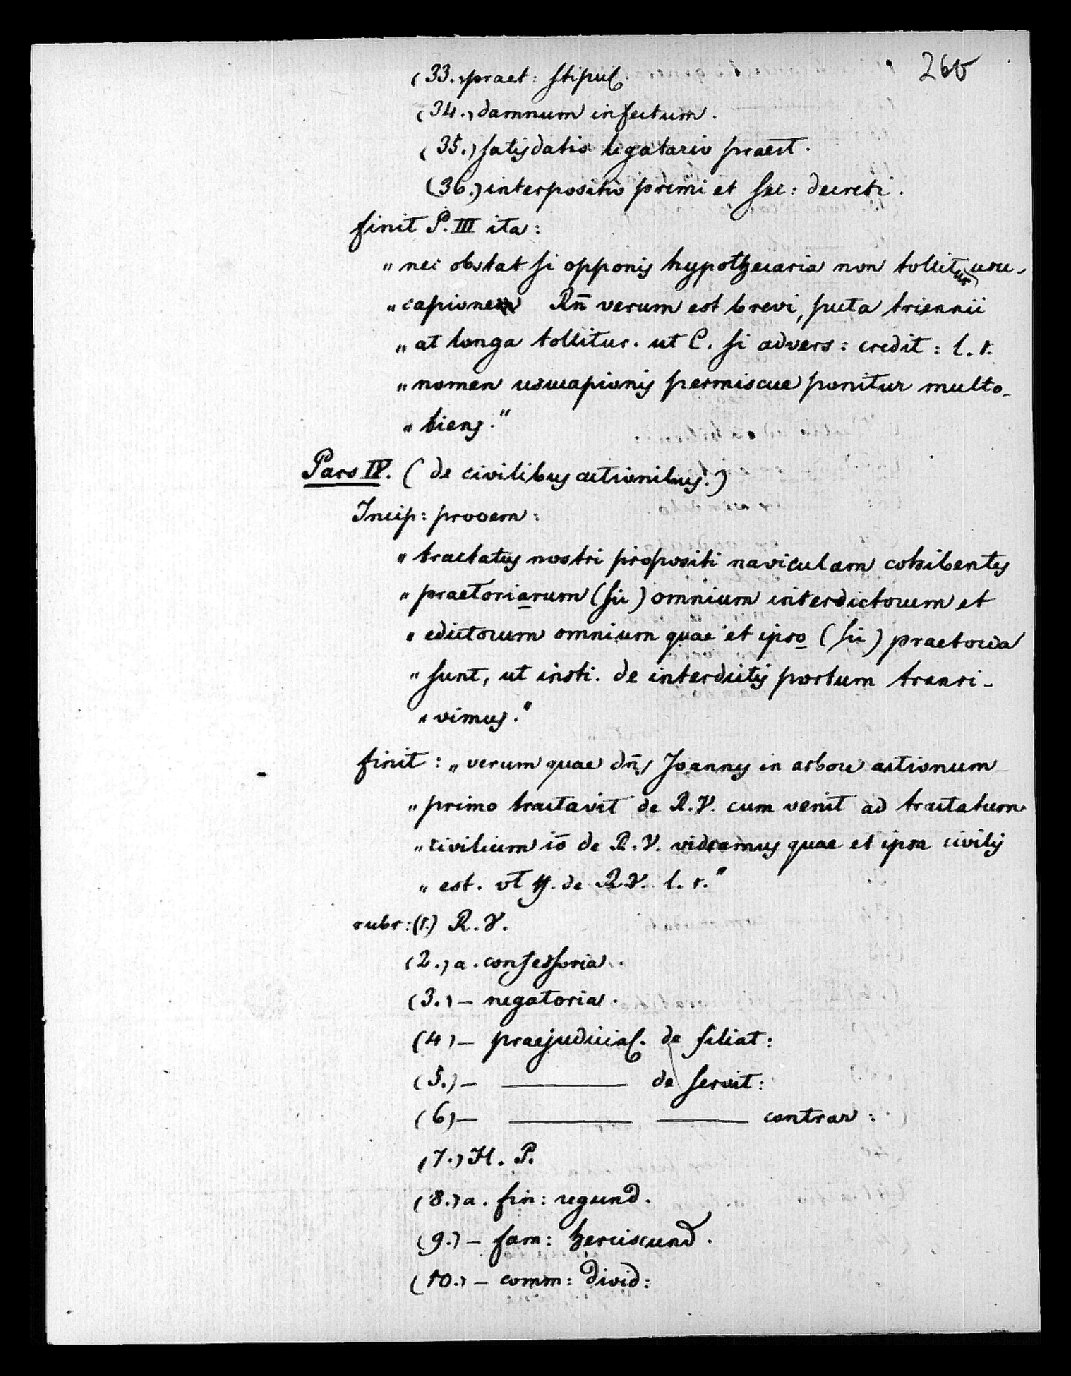 26b
(33.) praet: stipul.
(34.) damnum infectum.
(35.) satisdatio legatario praest.
(36.) interpositio primi et sec: decreti.
finit P. III ita:
„ nec obstat si opponis hypothecaria non tollitur usu-
„ capionem Rn̄ verum est brevi, puta triennii
„ at longa tollitur. ut C. si advers: credit: l. 1.
„ nomen usucapionis permiscue ponitur multo-
„ tiens."
Pars IV. (de civilibus actionibus.)
Incip: prooem:
„ tractatus nostri propositi naviculam cohibentes
„ praetoriarum (sic) omnium interdictorum et
„ edictorum omnium quae et ipso (sic) praetoria
„ sunt, ut insti. de interdictis portum transi-
„ vimus."
finit: „ verum quae dn̄s Joannes in arbore actionum
„ primo tractavit de R.V. cum venit ad tractatum
„ civilium iō de R.V. videamus quae et ipsa civilis
„ est. vt ff. de R.V. l. 1."
rubr: (1.) R.V.
(2.) a. confessoria.
(3.) — negatoria.
(4) — praejudicial. de filiat:
(5.) — ——— de servit:
(6) — ——— ——— contrar:
(7.) H. P.
(8.) a. fin: regund.
(9.) — fam: herciscund.
(10.) — comm: divid: